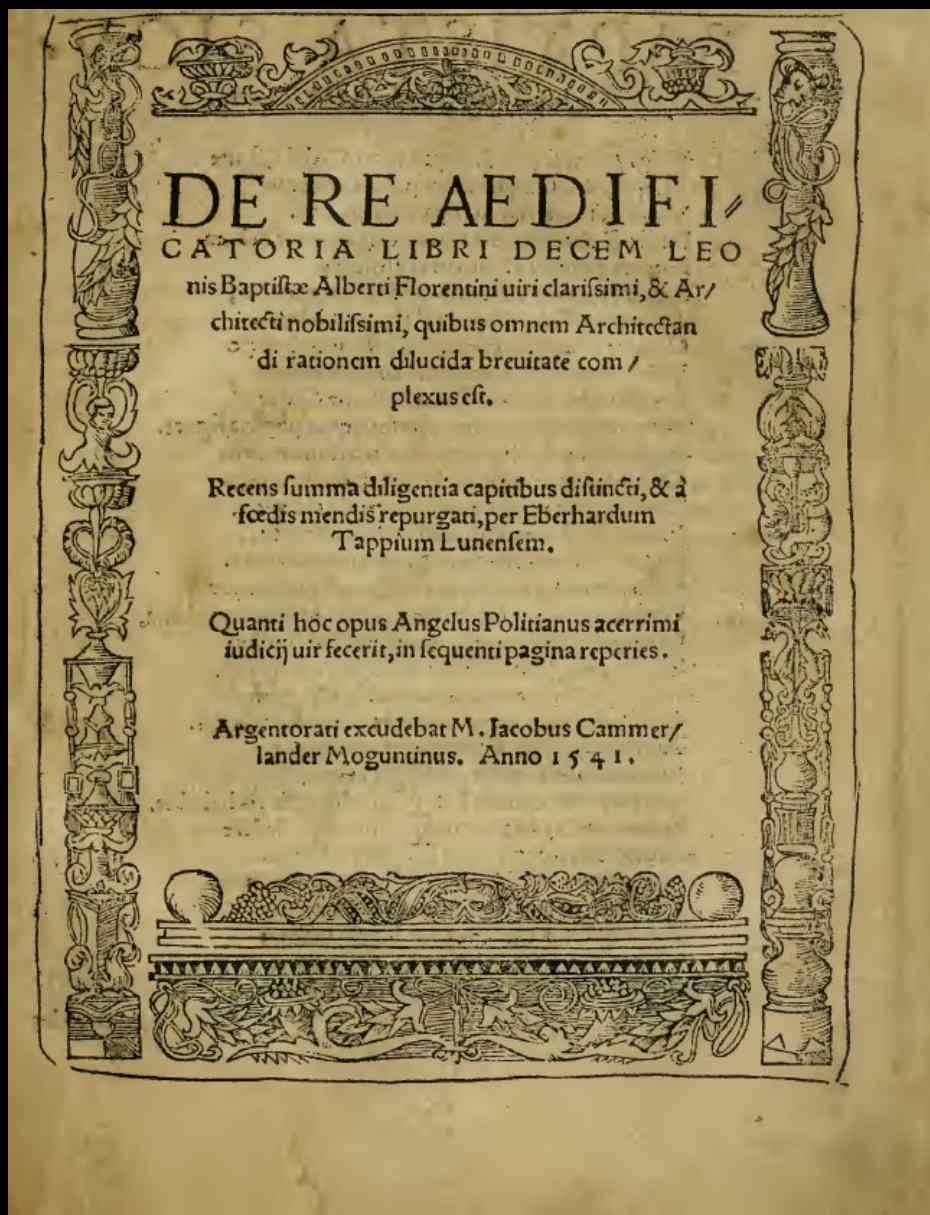 DE RE AEDIFI⸗
CATORIA LIBRI DECEM LEO
nis Baptiſtæ Alberti Florentini uiri clariſsimi, & Ar/
chitecti nobiliſsimi, quibus omnem Architectan
di rationem dilucida breuitate com /
plexus eſt.
Recens ſumma diligentia capitibus diſtincti, & à
fœdis mendis repurgati, per Eberhardum
Tappium Lunenſem.
Quanti hoc opus Angelus Politianus acerrimi
iudicij uir fecerit, in ſequenti pagina reperies.
Argentorati excudebat M. Iacobus Cammer/
lander Moguntinus. Anno 1541.